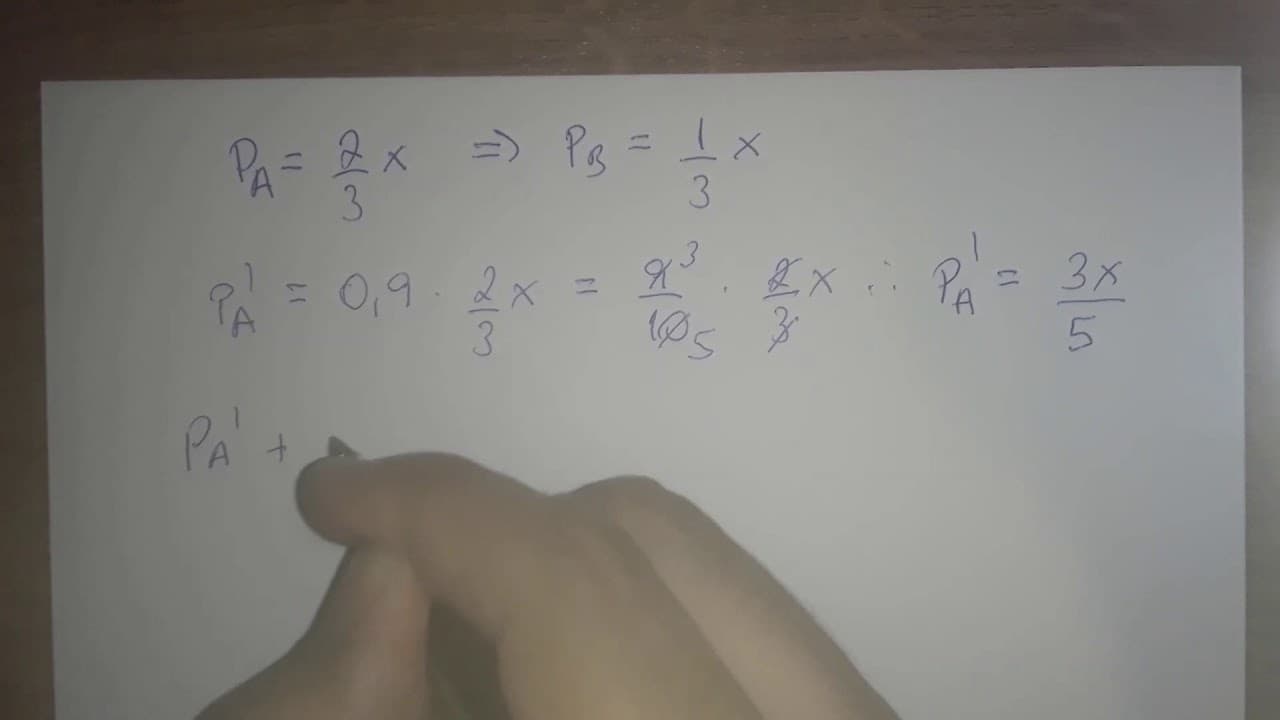 P_A = 2/3 x ⇒ P_B = 1/3 x
P_A' = 0,9 · 2/3 x = 9̸³/10̸₅ · 2̸/3̸ x ∴ P_A' = 3x/5
P_A' +